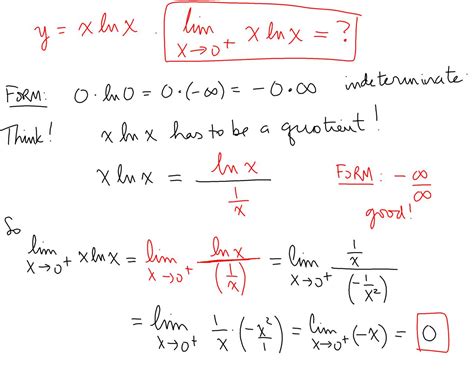 y = x ln x . lim x→0⁺ x ln x = ?
FORM: 0·ln0 = 0·(-∞) = -0·∞ indeterminate.
Think! x ln x has to be a quotient!
x ln x = ln x / (1/x) FORM: -∞/∞
good!
So
lim x→0⁺ x ln x = lim x→0⁺ ln x / (1/x) = lim x→0⁺ (1/x) / (-1/x²)
= lim x→0⁺ 1/x · (-x²/1) = lim x→0⁺ (-x) = 0